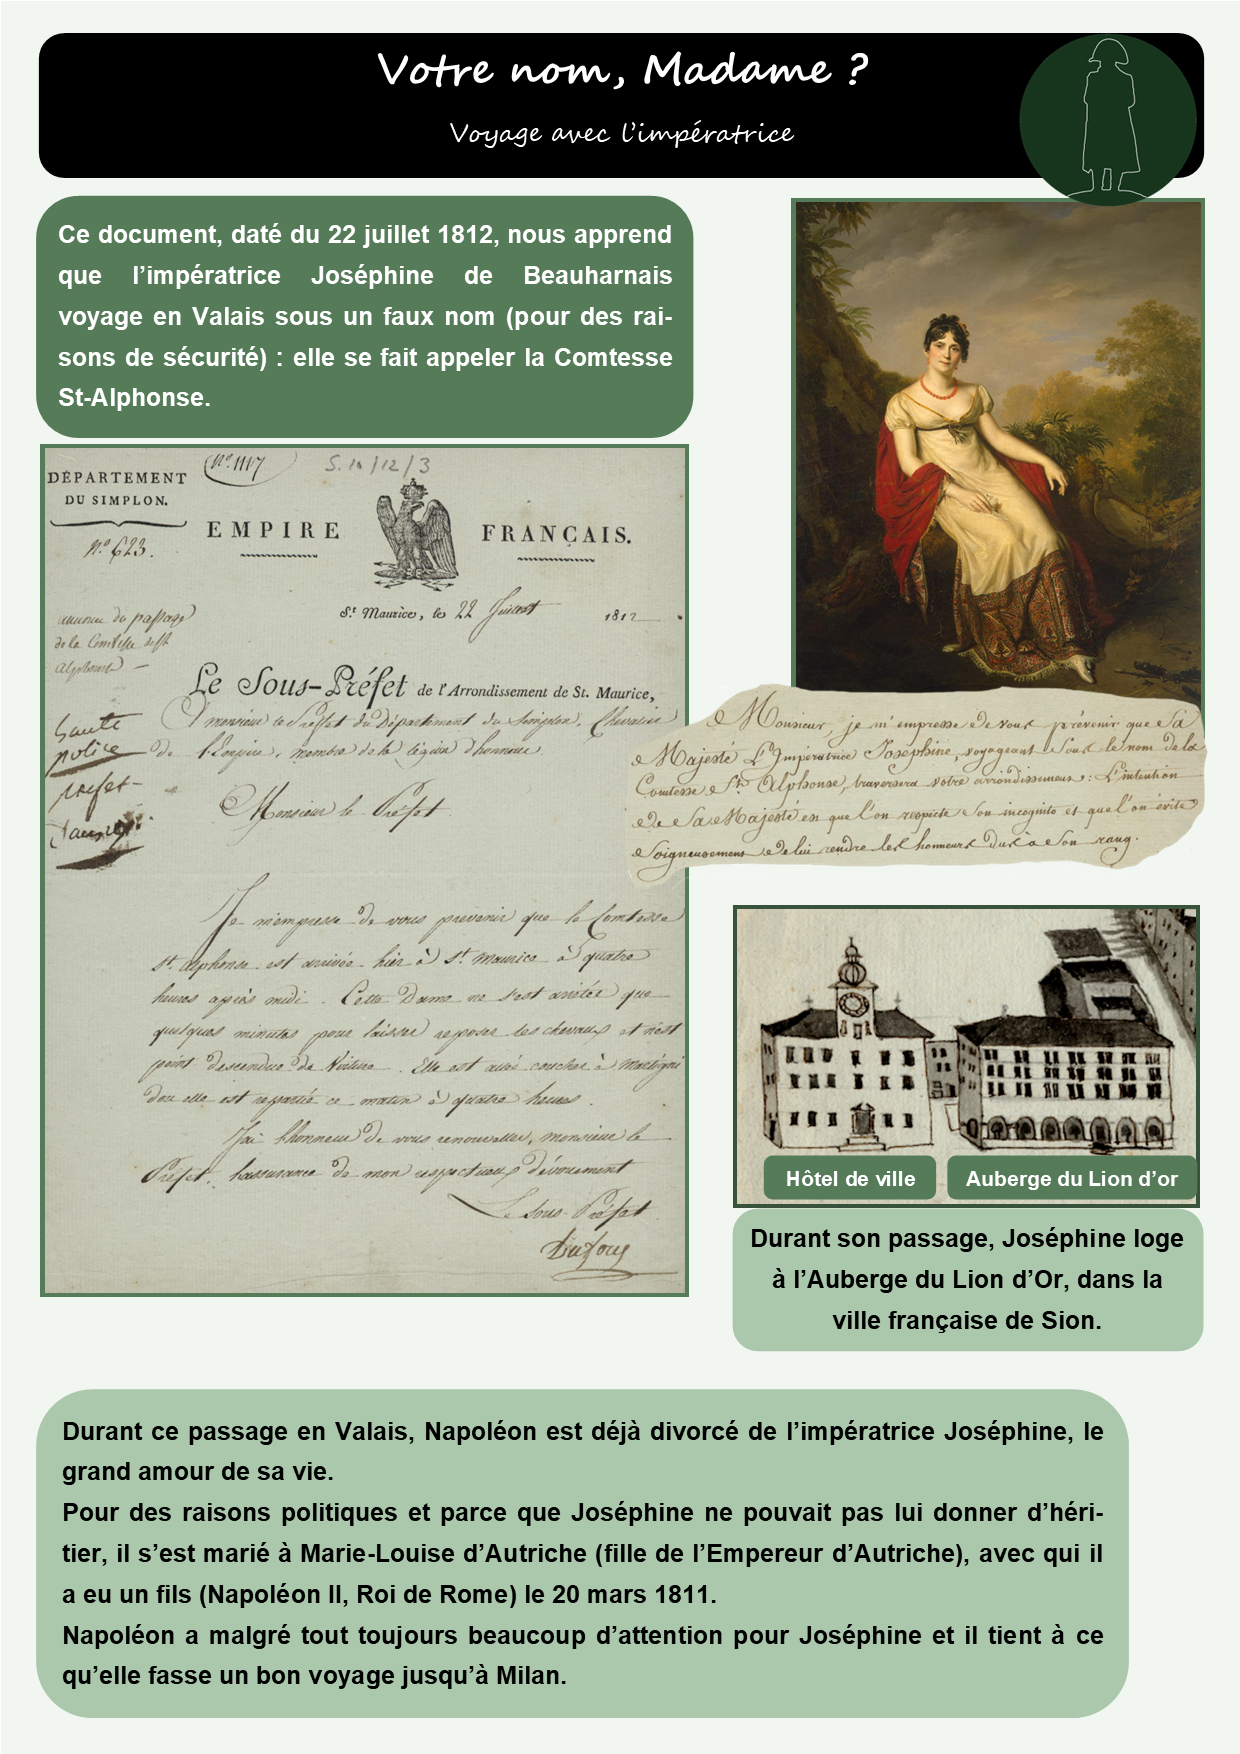 Votre nom, Madame ?
Voyage avec l’impératrice
Ce document, daté du 22 juillet 1812, nous apprend
que l’impératrice Joséphine de Beauharnais
voyage en Valais sous un faux nom (pour des rai-
sons de sécurité) : elle se fait appeler la Comtesse
St-Alphonse.
N.º 1117
S. 10/12/3
DÉPARTEMENT
DU SIMPLON.
Nº 623.
EMPIRE FRANÇAIS.
St. Maurice, le 22 Juillet 1812
du passage
de la Comtesse de St
Alphonse
Le Sous-Préfet de l’Arrondissement de St. Maurice,
A monsieur le Préfet du Département du Simplon, Chevalier
de l'Empire, membre de la légion d'honneur.
haute
police
préfet
Monsieur le Préfet
Je m'empresse de vous prevenir que la Comtesse
St. Alphonse est arrivée hier à St. Maurice à quatre
heures après midi. Cette Dame ne s'est arrêtée que
quelques minutes pour laisser reposer les chevaux et n'est
point descendue de Voiture. Elle est allée coucher à Martigni
dou elle est repartie ce matin à quatre heures.
J'ai l'honneur de vous renouveller, monsieur le
Préfet, l'assurance de mon respectueux dévouement
Le Sous-Préfet
Dufour
Monsieur, je m'empresse de vous prévenir que Sa
Majesté L'Impératrice Joséphine, voyageant sous le nom de la
Comtesse St. Alphonse, traversera votre arrondissement : L'intention
de Sa Majesté est que l'on respecte son incognito et que l'on évite
soigneusement de lui rendre les honneurs dus à son rang.
Hôtel de ville
Auberge du Lion d’or
Durant son passage, Joséphine loge
à l’Auberge du Lion d’Or, dans la
ville française de Sion.
Durant ce passage en Valais, Napoléon est déjà divorcé de l’impératrice Joséphine, le
grand amour de sa vie.
Pour des raisons politiques et parce que Joséphine ne pouvait pas lui donner d’héri-
tier, il s’est marié à Marie-Louise d’Autriche (fille de l’Empereur d’Autriche), avec qui il
a eu un fils (Napoléon II, Roi de Rome) le 20 mars 1811.
Napoléon a malgré tout toujours beaucoup d’attention pour Joséphine et il tient à ce
qu’elle fasse un bon voyage jusqu’à Milan.